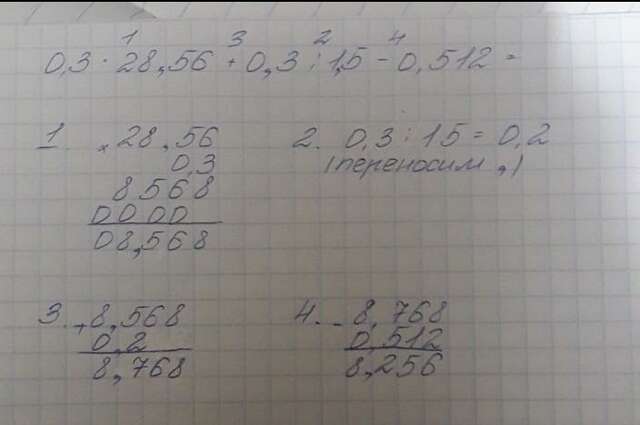 1 3 2 4
0,3 · 28,56 + 0,3 : 1,5 - 0,512 =
1. × 28,56
0,3
8568
0000
08,568
2. 0,3 : 15 = 0,2
(переносим ,)
3. + 8,568
0,2
8,768
4. - 8,768
0,512
8,256